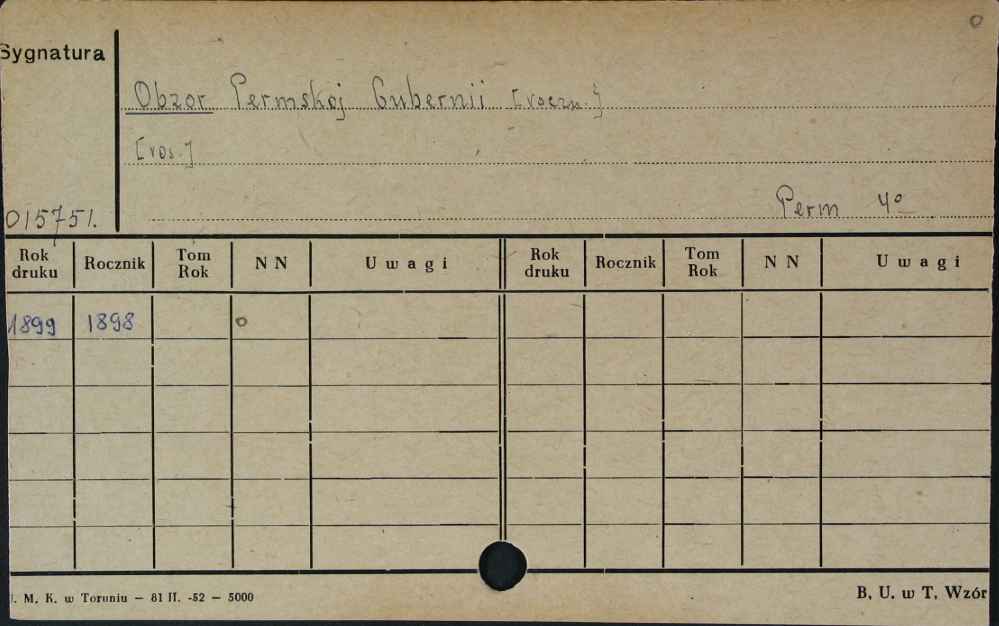 o
Sygnatura
Obzor Permskoj Gubernii [roczn.]
[ros.]
Perm 4º
015751.
Rok druku Rocznik Tom Rok NN Uwagi Rok druku Rocznik Tom Rok NN Uwagi
1899 1898 o
. M. K. w Toruniu — 81 II. -52 — 5000
B. U. w T. Wzór